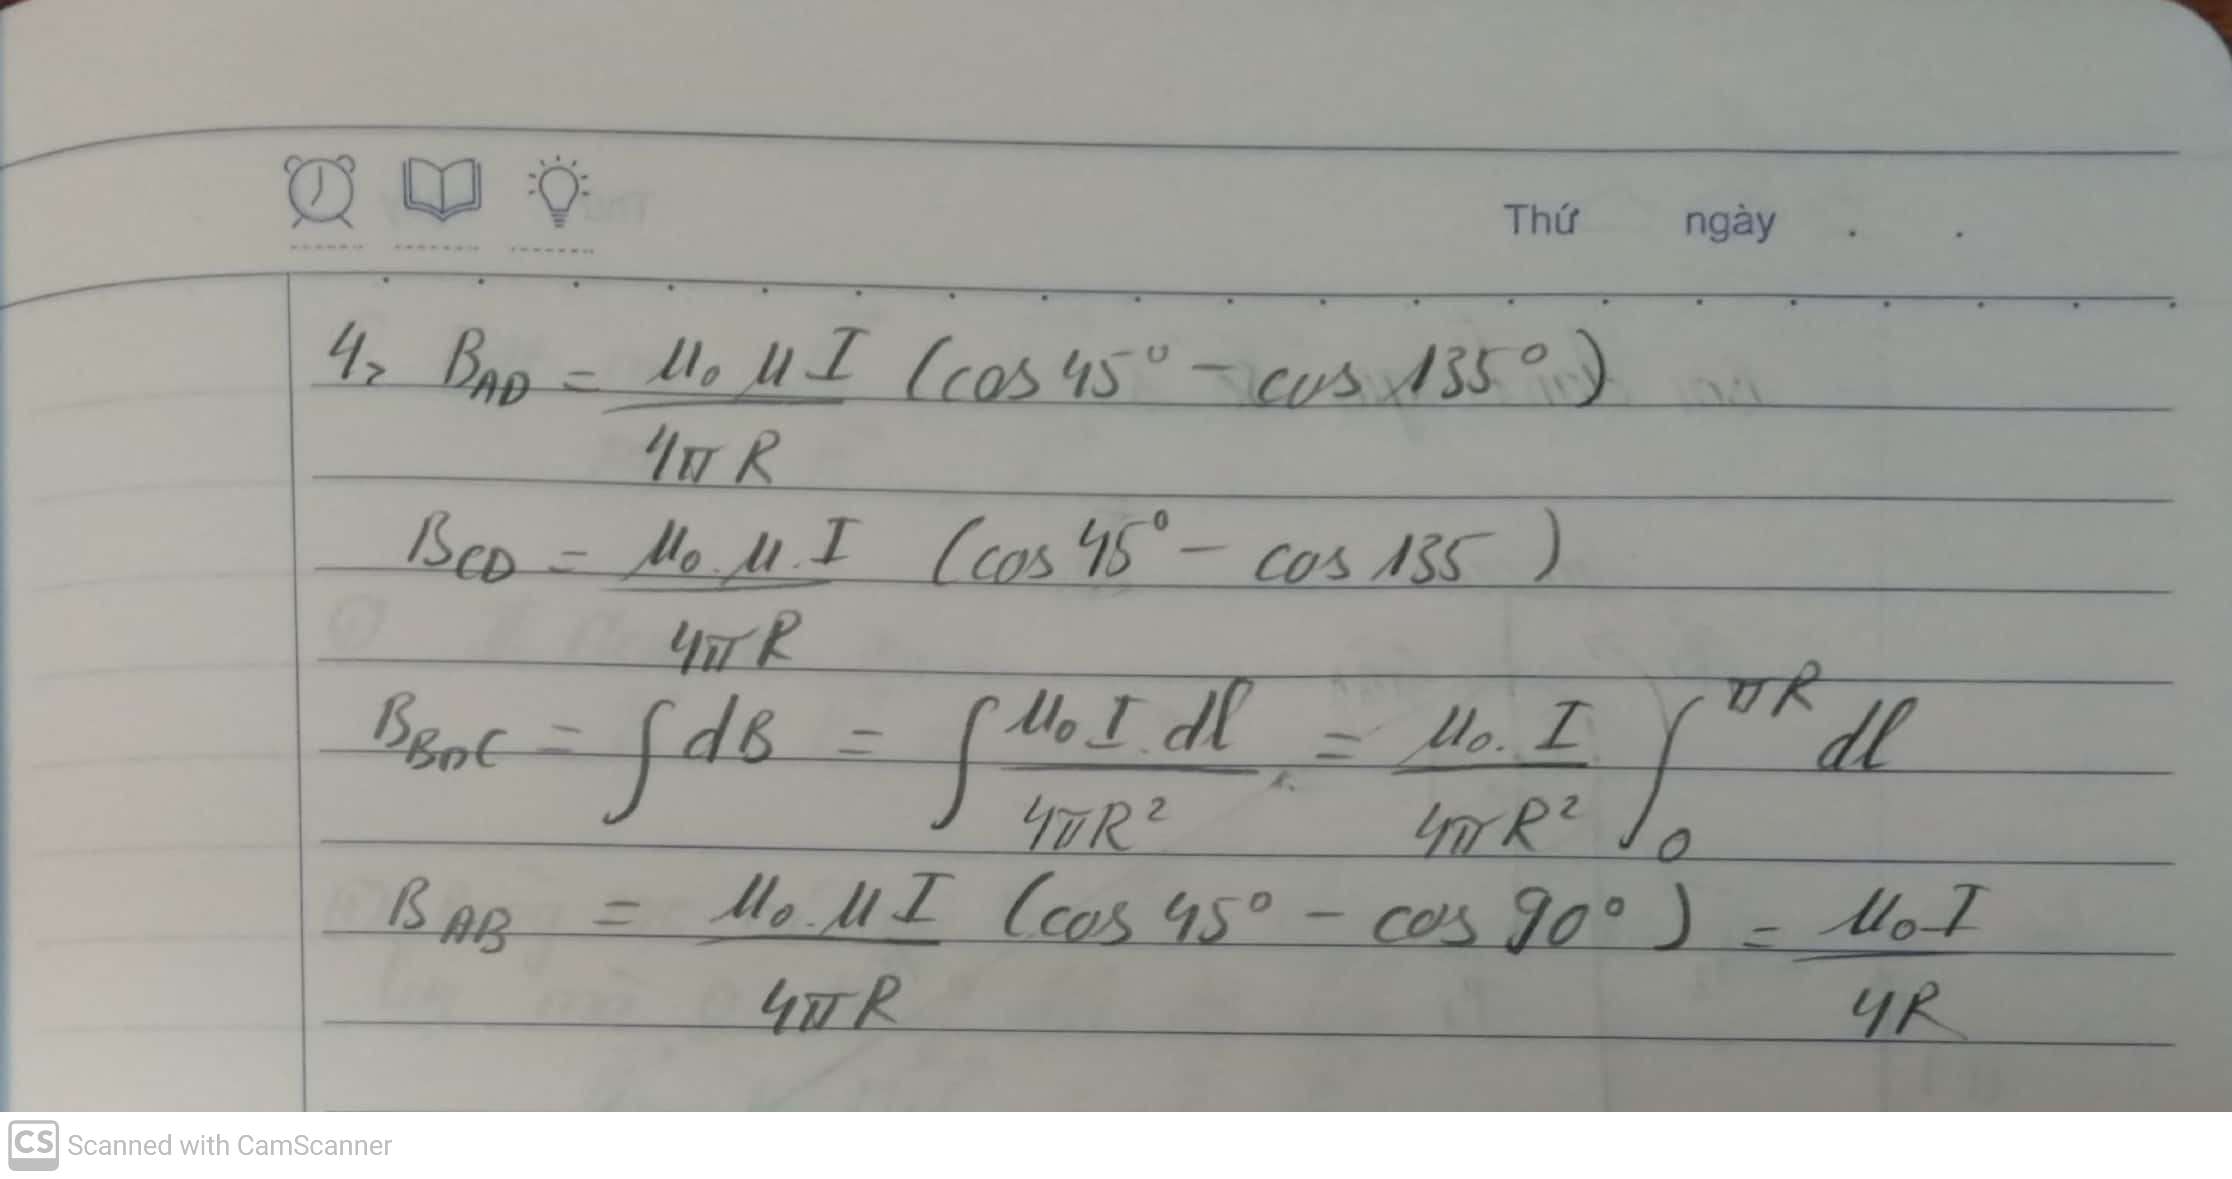 Thứ ngày . .
4, B_AD = μ₀ μ I / 4πR (cos 45° - cos 135°)
B_CD = μ₀.μ.I / 4πR (cos 45° - cos 135)
B_BnC = ∫ dB = ∫ μ₀ I.dl / 4πR² = μ₀.I / 4πR² ∫₀^πR dl
B_AB = μ₀.μ I / 4πR (cos 45° - cos 90°) = μ₀.I / 4R
CS Scanned with CamScanner